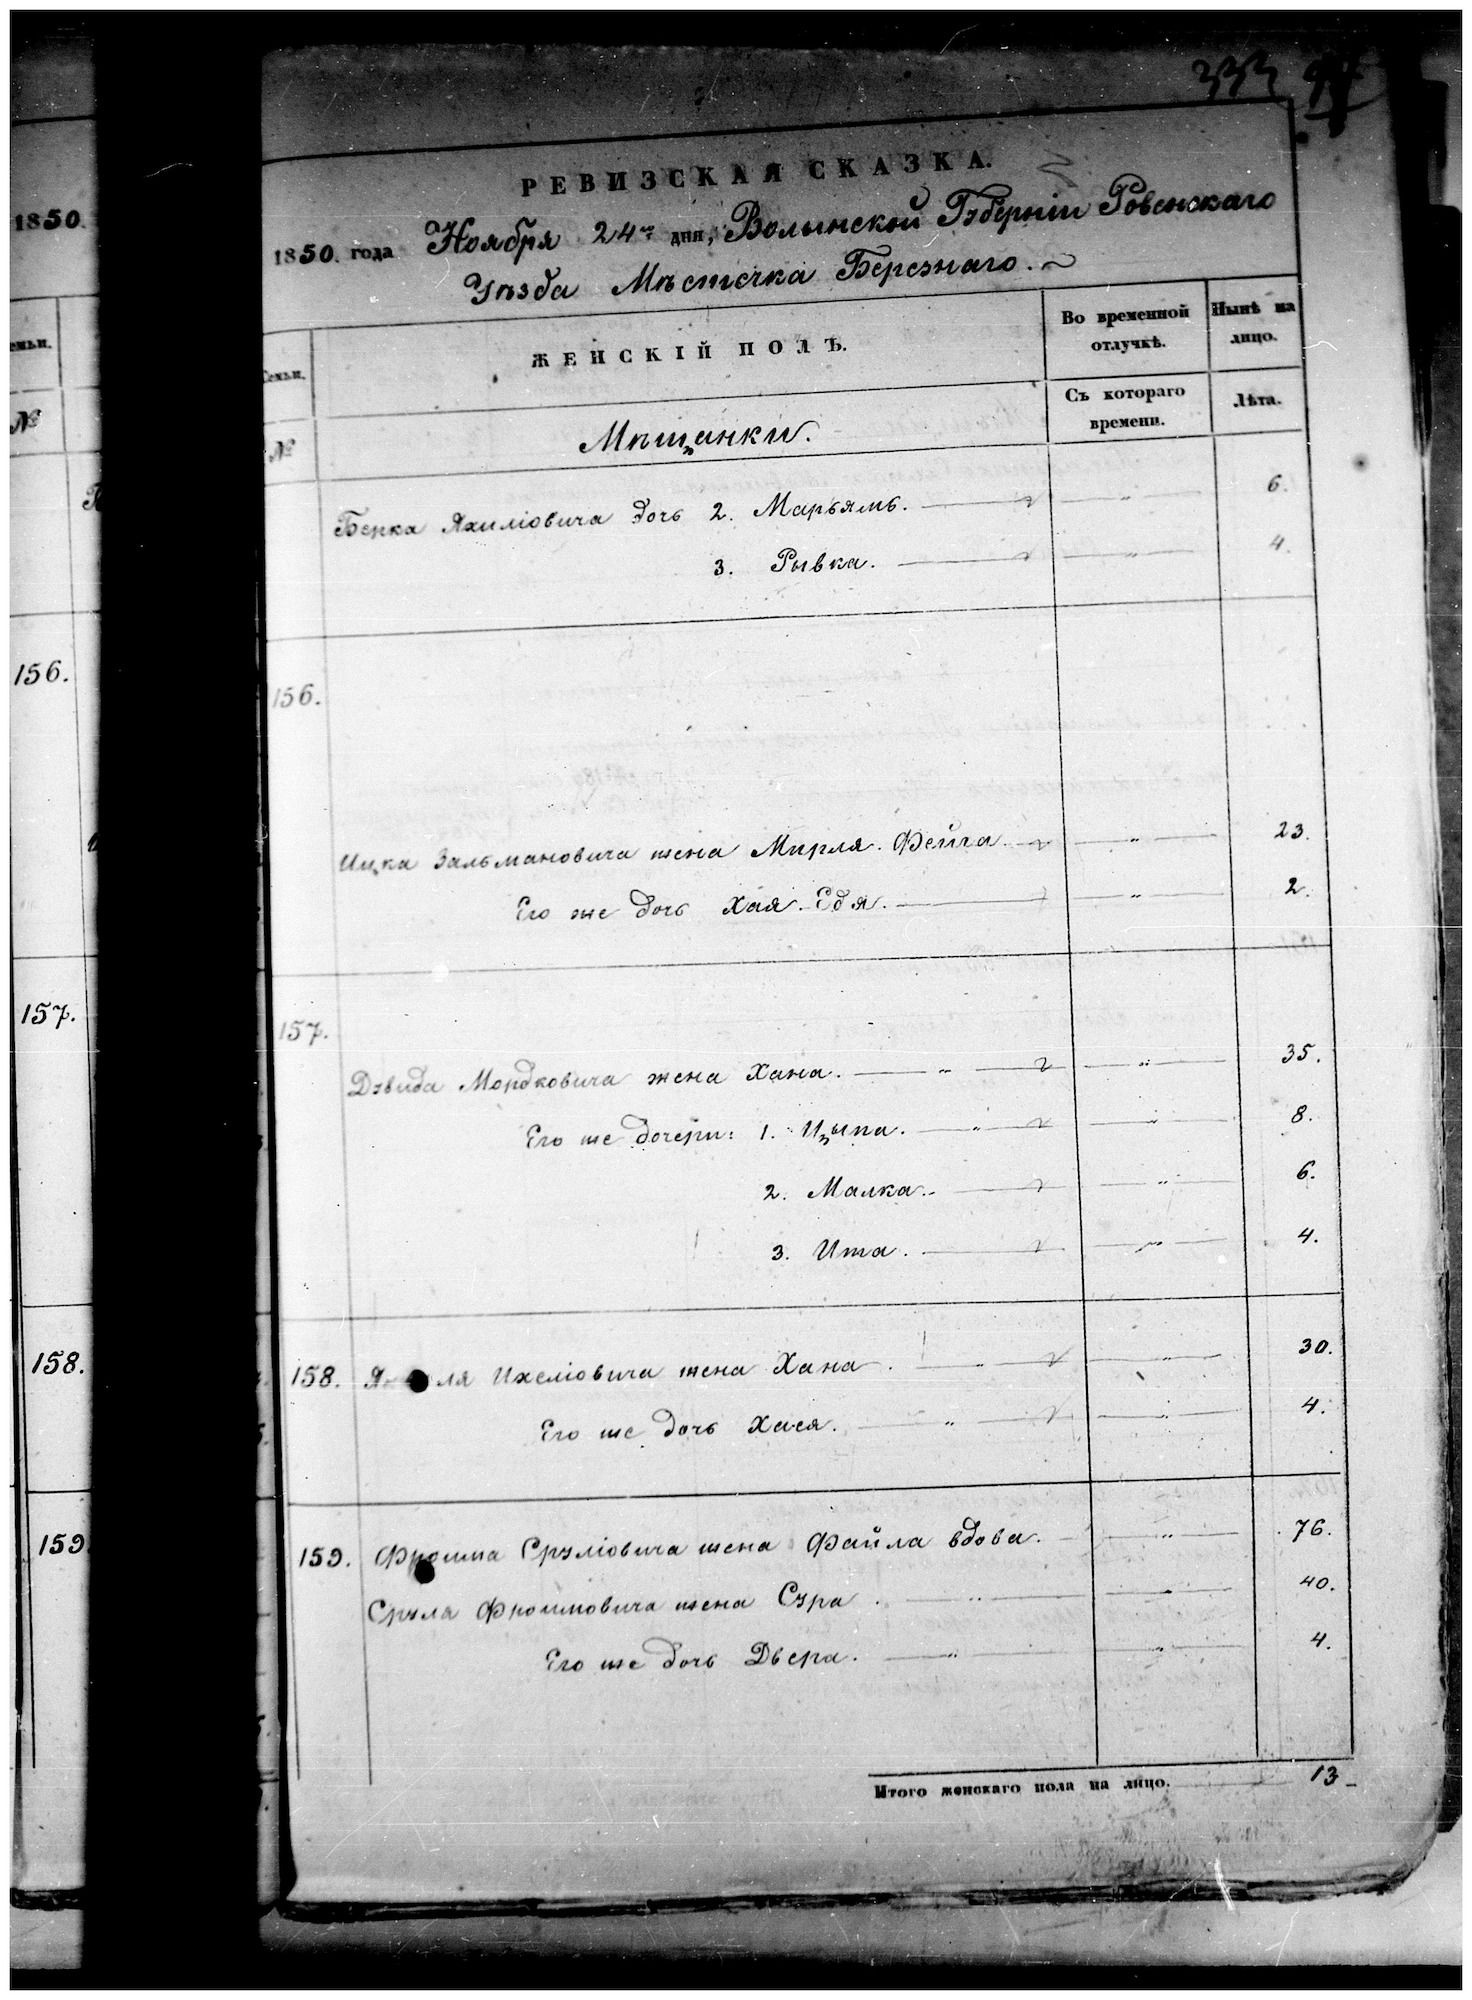 333
РЕВИЗСКАЯ СКАЗКА.
1850. года Ноября 24го дня, Волынской Губерніи Ровенскаго
Уѣзда Мѣстечка Березнаго.
Семьи.
ЖЕНСКІЙ ПОЛЪ.
Во временной отлучкѣ.
Нынѣ на лицо.
№
Мѣщанки.
Съ котораго времени.
Лѣта.
Берка Яхиліовича дочь 2. Марьямъ. " 6.
3. Рывка. " 4.
156.
Ицка Зальмановича жена Мирля. Фейга " 23.
Его же дочь Хая. Едя. " 2.
157.
Дэвида Мордковича жена Хана. " " 35.
Его же дочери: 1. Цыпа. " " 8.
2. Малка. " 6.
3. Ита. " 4.
158. ля Ихеліовича жена Хана. " " 30.
Его же дочь Хася. " " 4.
159. Фроима Сруліовича жена Файла вдова. " 76.
Сруля Фроимовича жена Сура. " " 40.
Его же дочь Двера. " " 4.
Итого женскаго пола на лицо. 13
1850.
емьи.
№
156.
157.
158.
159.